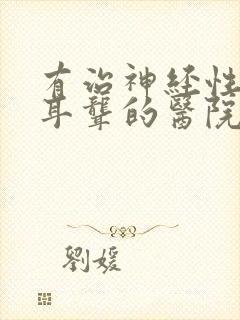 有治神经性
耳聋的醫院
劉媛